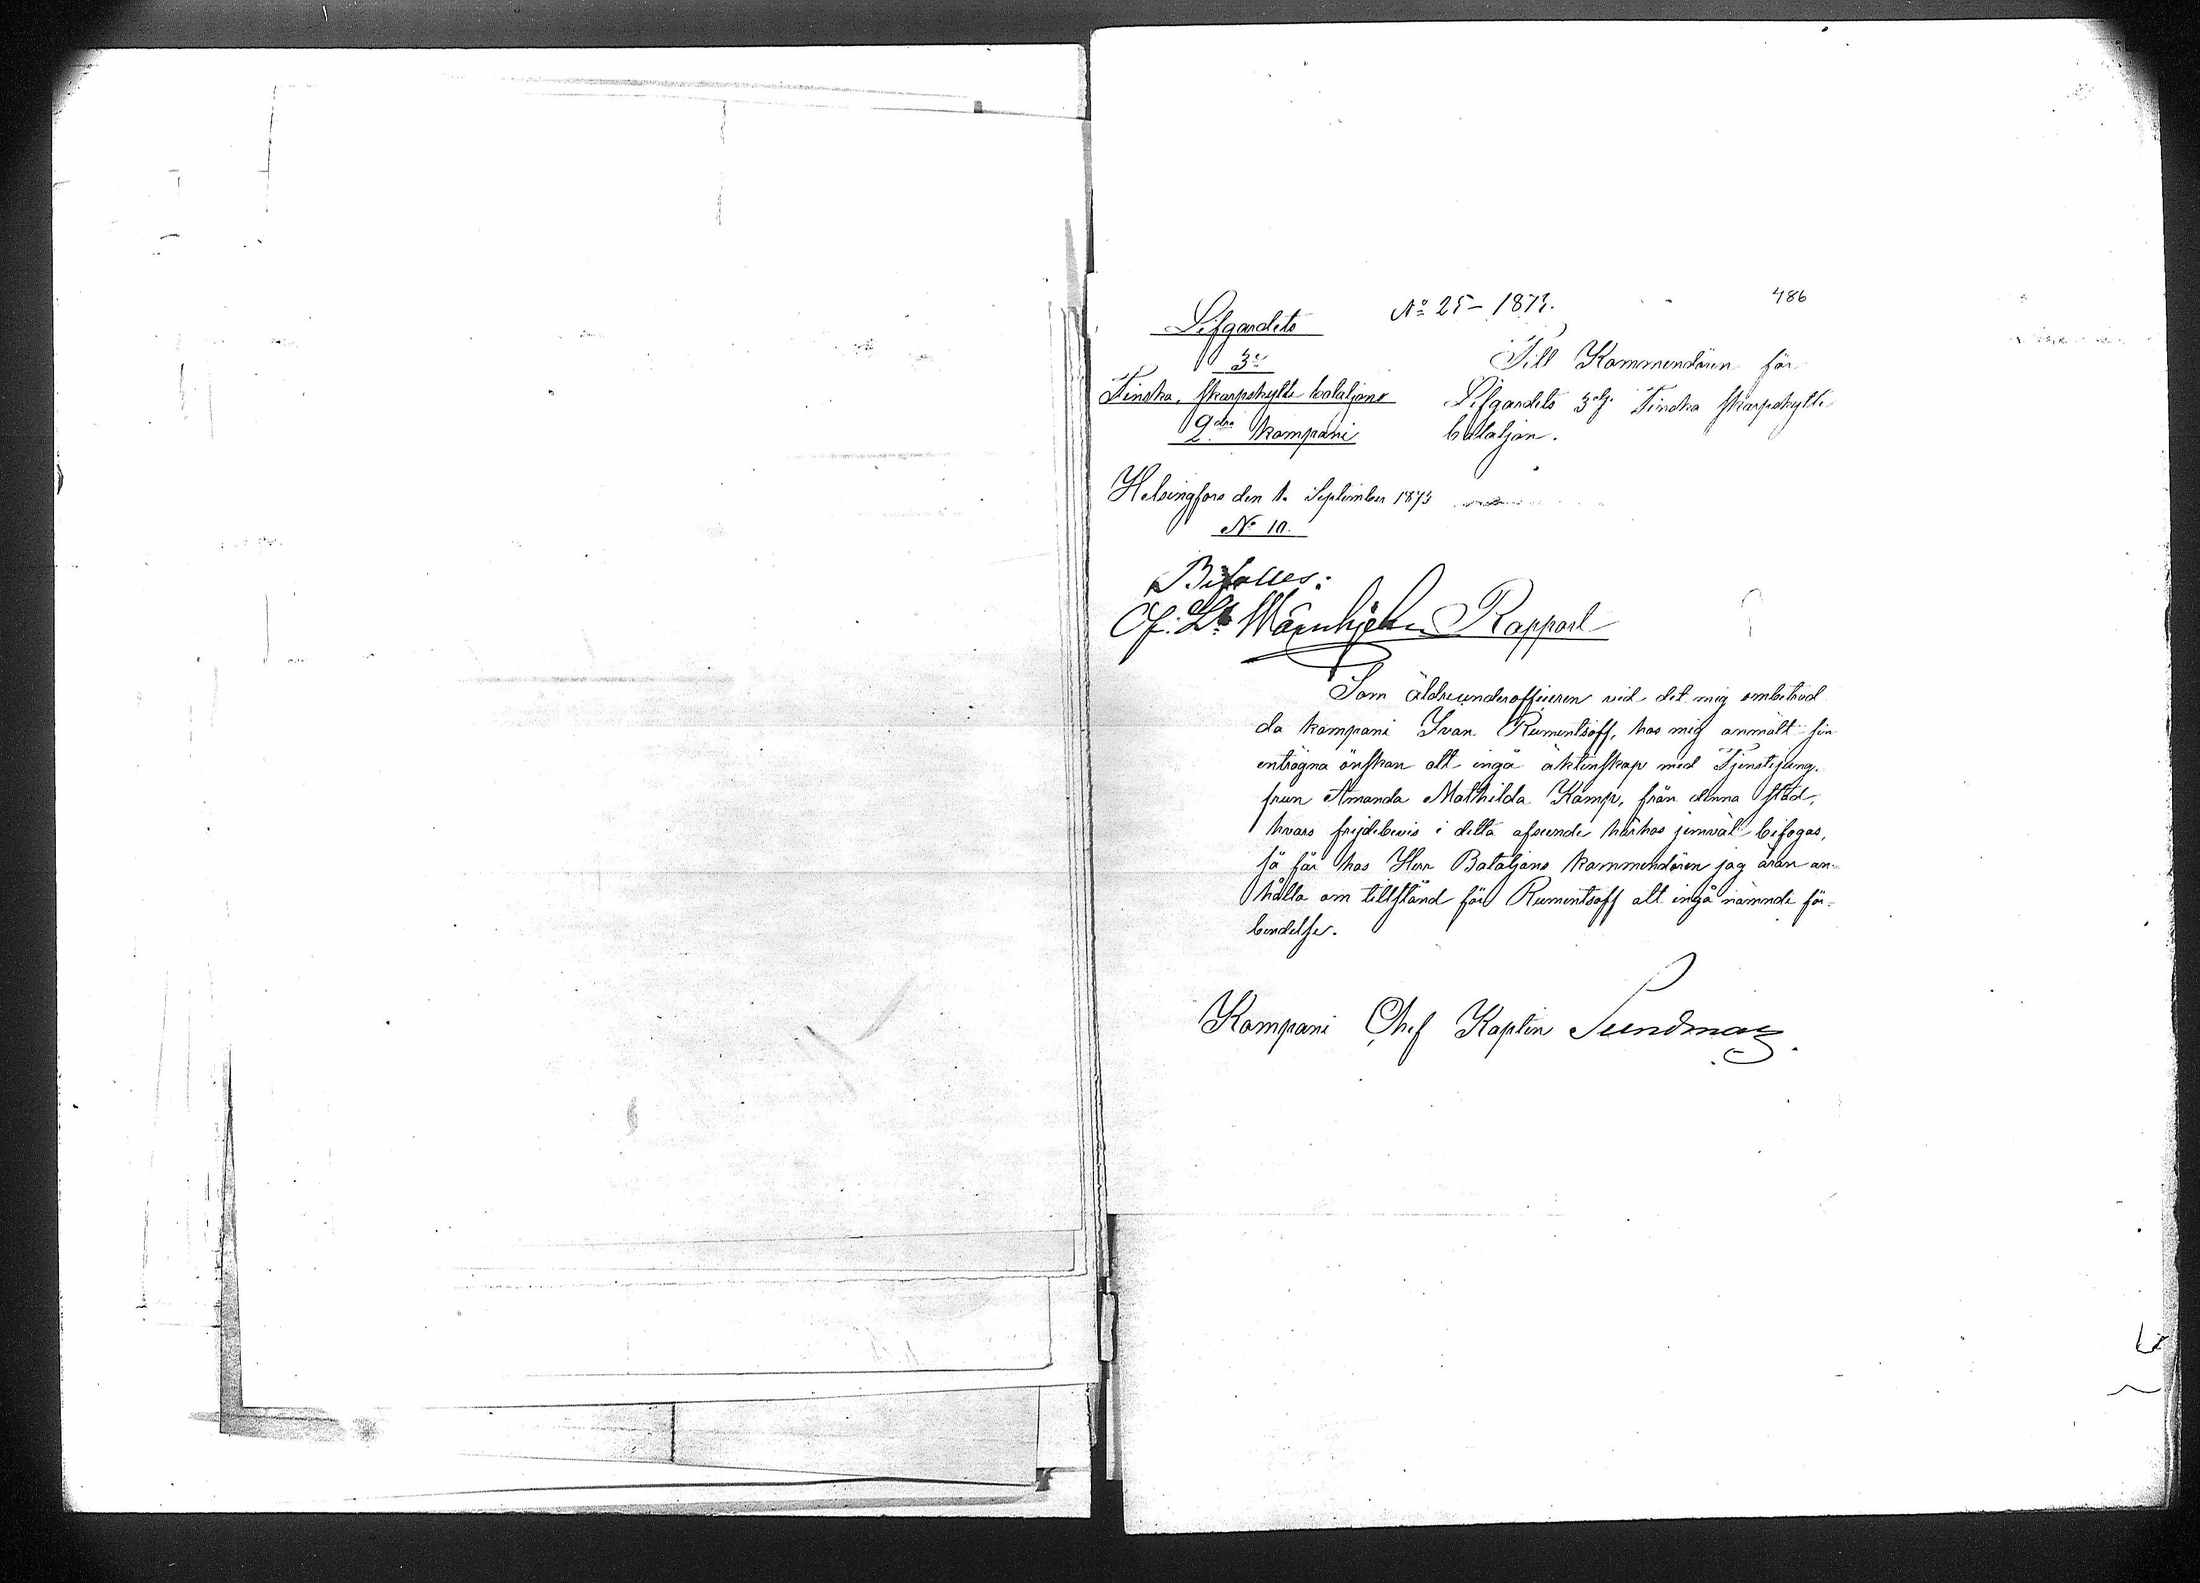 No 25 – 1873.
486
Lifgardets
3je
Finska Skarpskytte bataljons
2dra kompani
Till Kommendören för
Lifgardets 3dje Finska Skarpskytte
bataljon.
Helsingfors den 1. September 1873
No 10.
Bifalles:
Öf. Lt Wärnhjelm
Rapport
Som äldreunderofficeren vid det mig ombetrod
da kompani Ivan Rumentsoff, hos mig anmält sin
enträgna önskan att ingå äktenskap med Tjenstejung-
frun Amanda Mathilda Kamp, från denna stad,
hvars frejdebevis i detta afseende härhos jemväl bifogas,
så får hos Herr Bataljons kommendören jag äran an-
hålla om tillstånd för Rumentsoff att ingå nämnde för-
bindelse.
Kompani Chef Kapten Sundman